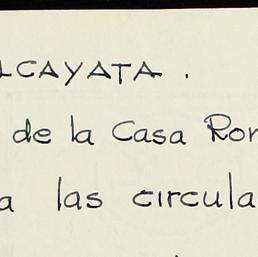 LCAYATA.
de la Casa Ron
a las circula